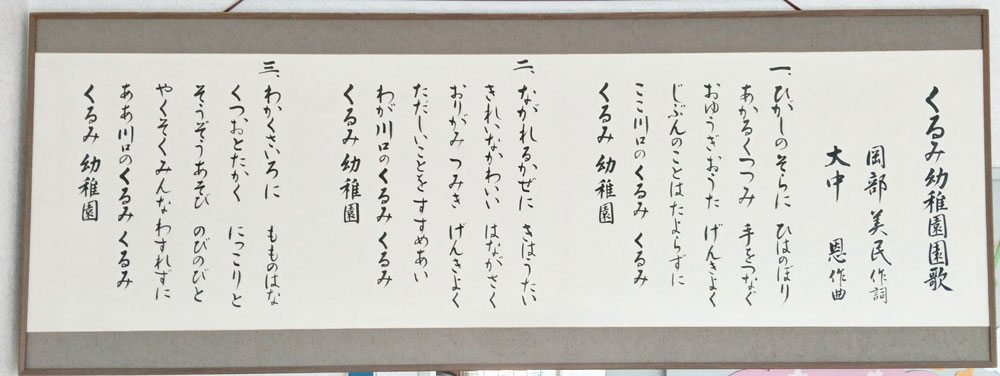 くるみ幼稚園園歌
岡部 美民 作詞
大中 恩 作曲
一、ひがしのそらに ひはのぼり
あかるくつつみ 手をつなぐ
おゆうぎおうた げんきよく
じぶんのことはたよらずに
ここ川口のくるみ くるみ
くるみ 幼稚園
二、ながれるかぜに きはうたい
きれいなかわい はながさく
おりがみ つみき げんきよく
ただしいことを すすめあい
わが川口の くるみ くるみ
くるみ 幼稚園
三、わかくさいろに もものはな
くつおとたかく にっこりと
そうぞうあそび のびのびと
やくそくみんな わすれずに
ああ川口の くるみ くるみ
くるみ 幼稚園